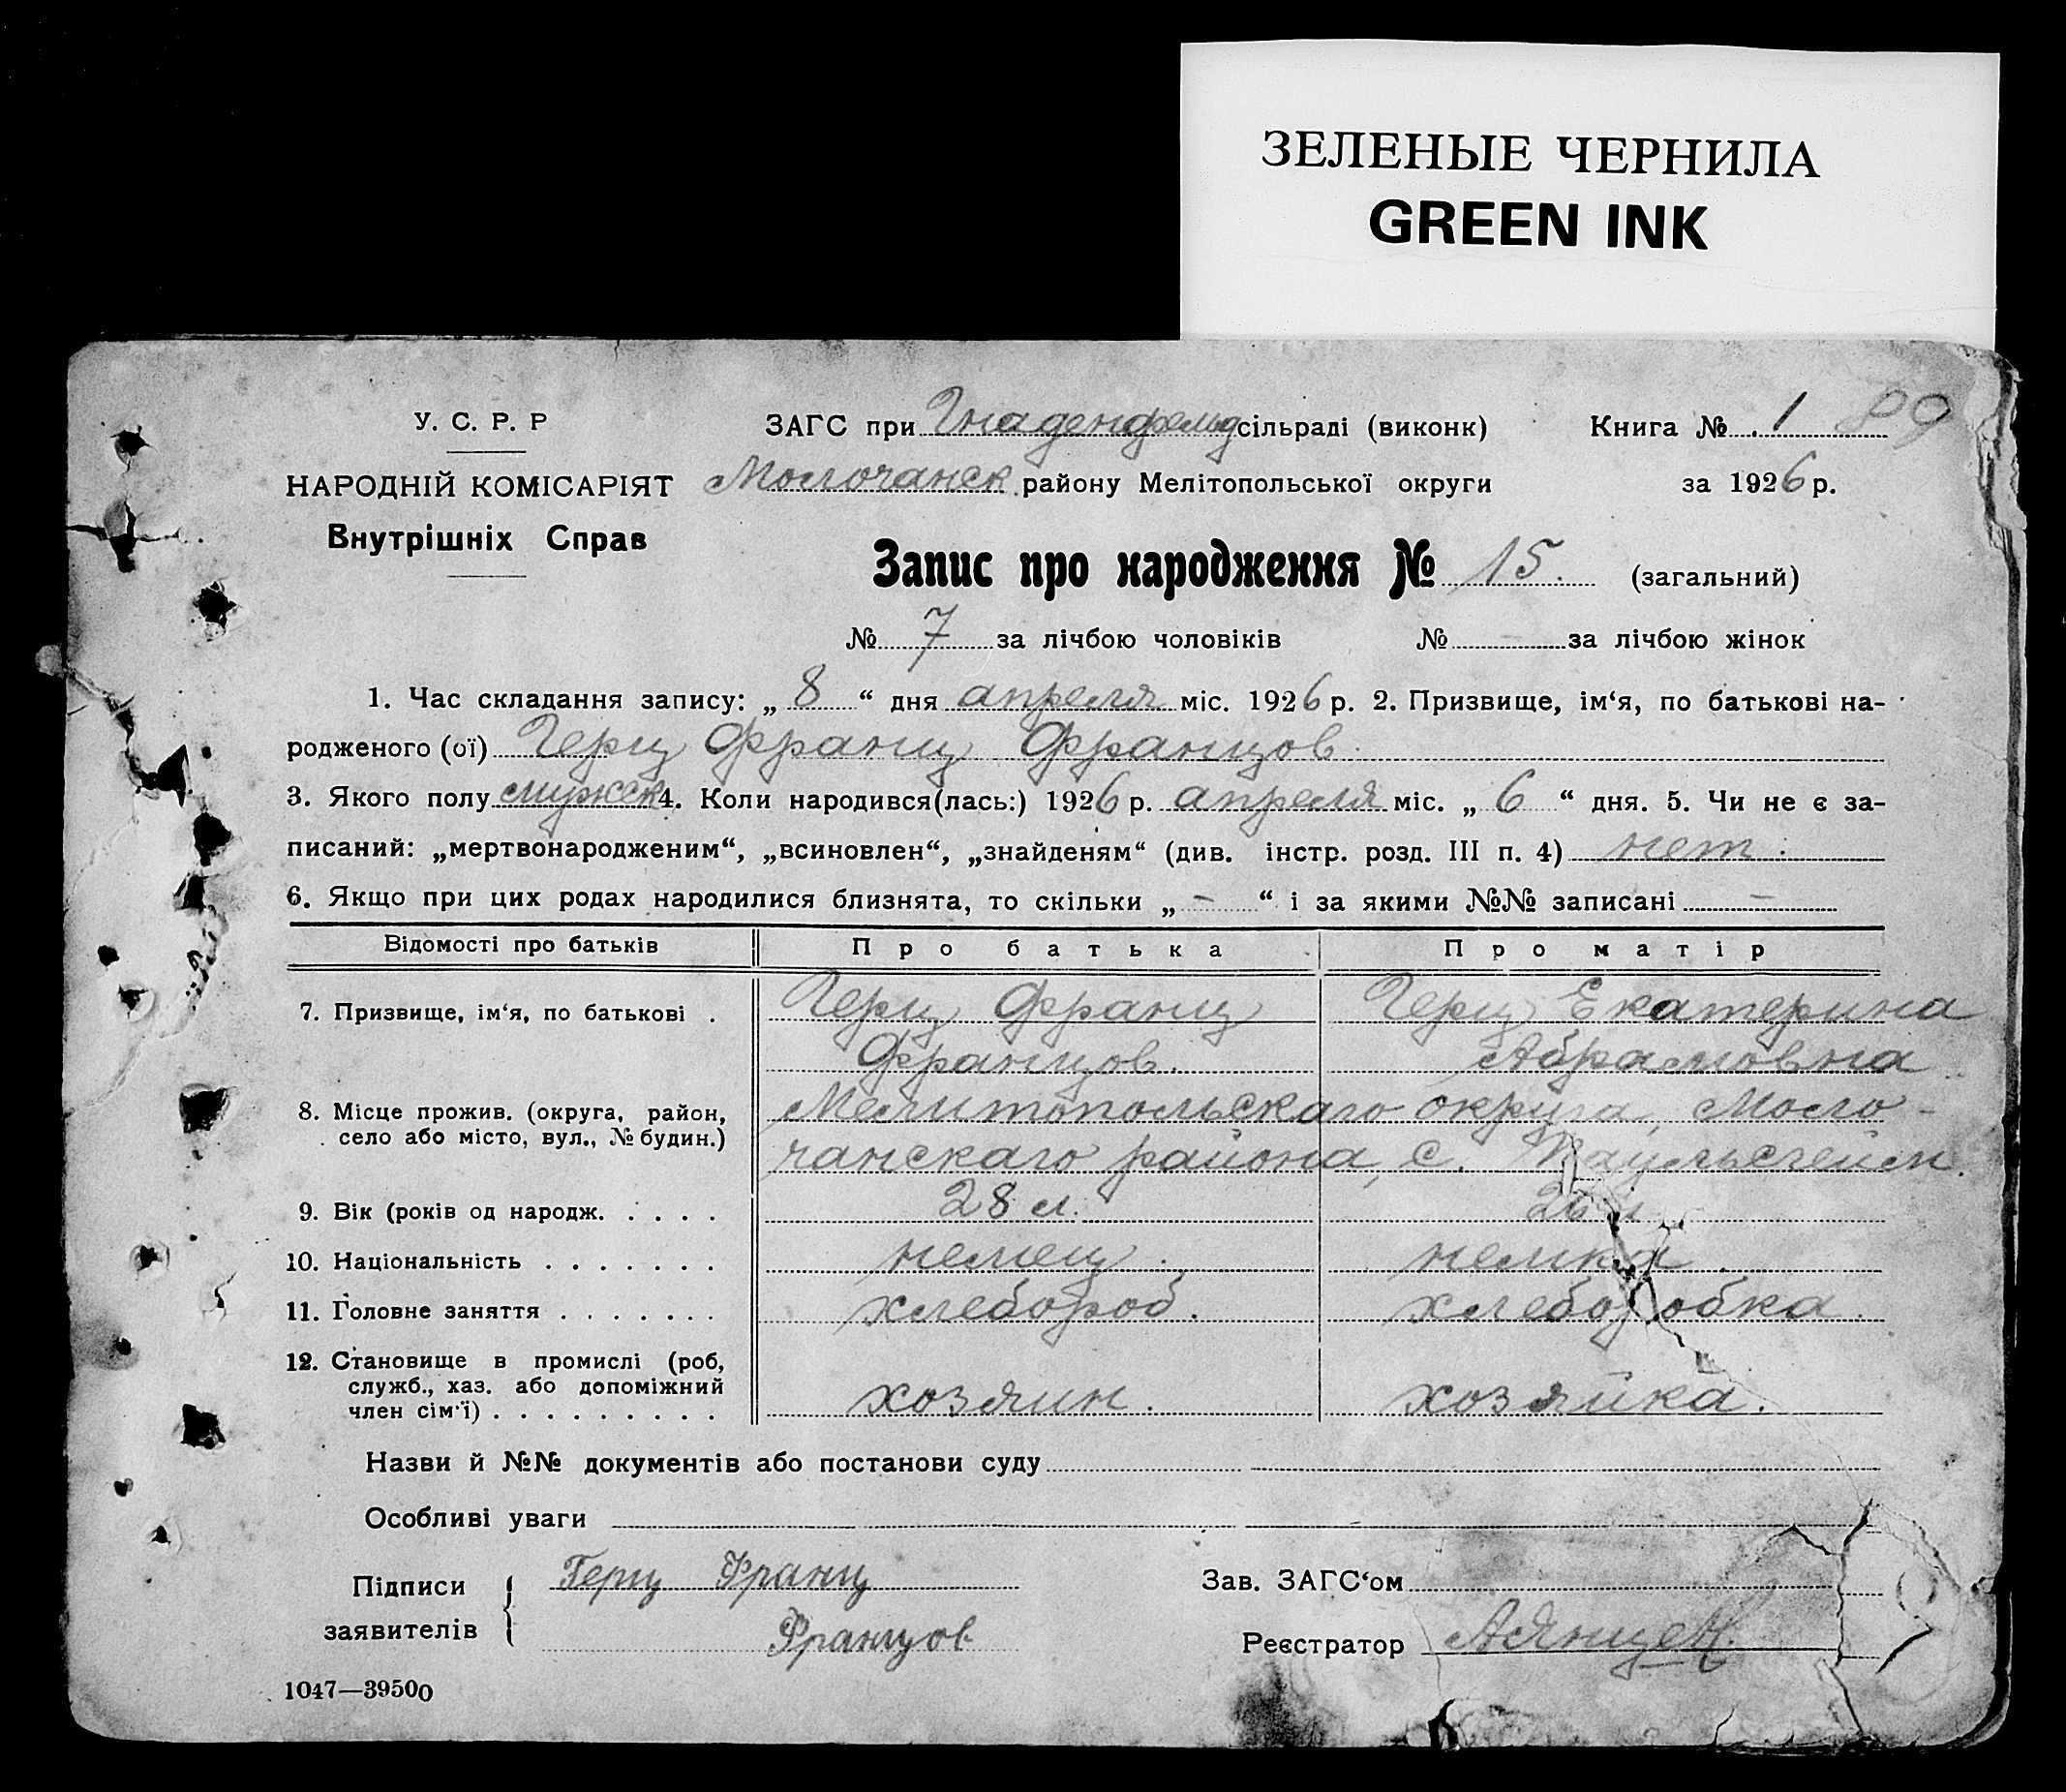 ЗЕЛЕНЫЕ ЧЕРНИЛА
GREEN INK
У. С. Р. Р
НАРОДНІЙ КОМІСАРІЯТ
Внутрішніх Справ
ЗАГС при Гнаденфельд сільраді (виконк)
Книга № 1 89
Молочанск району Мелітопольської округи
за 1926 р.
Запис про народження № 15. (загальний)
№ 7 за лічбою чоловіків № - за лічбою жінок
1. Час складання запису: „ 8 “ дня апреля міс. 1926 р. 2. Призвище, ім‘я, по батькові на-
родженого (ої) Герц Франц Францов.
3. Якого полу мужск 4. Коли народився(лась:) 1926 р. апреля міс. „ 6 “ дня. 5. Чи не є за-
писаний: „мертвонародженим“, „всиновлен“, „знайденям“ (див. інстр. розд. III п. 4) нет.
6. Якщо при цих родах народилися близнята, то скільки „ - “ і за якими №№ записані -
Відомості про батьків Про батька Про матір
7. Призвище, ім‘я, по батькові . Герц Франц Герц Екатерина
Францов. Абрамовна
8. Місце прожив. (округа, район, Мелитопольскаго округа, Моло-
село або місто, вул., № будин.) чанскаго района, с. Паульсгейм.
9. Вік (років од народж. . . . . 28 л. 26 л
10. Національність . . . . . . . немец. немка.
11. Головне заняття . . . . . . . хлебороб. хлеборобка.
12. Становище в промислі (роб,
служб., хаз. або допоміжний
член сім‘ї) . . . . . . . . . хозяин. хозяйка.
Назви й №№ документів або постанови суду
Особливі уваги
Підписи Герц Франц
заявителів Францов
Зав. ЗАГС‘ом
Реєстратор АЯнцен
1047—39500